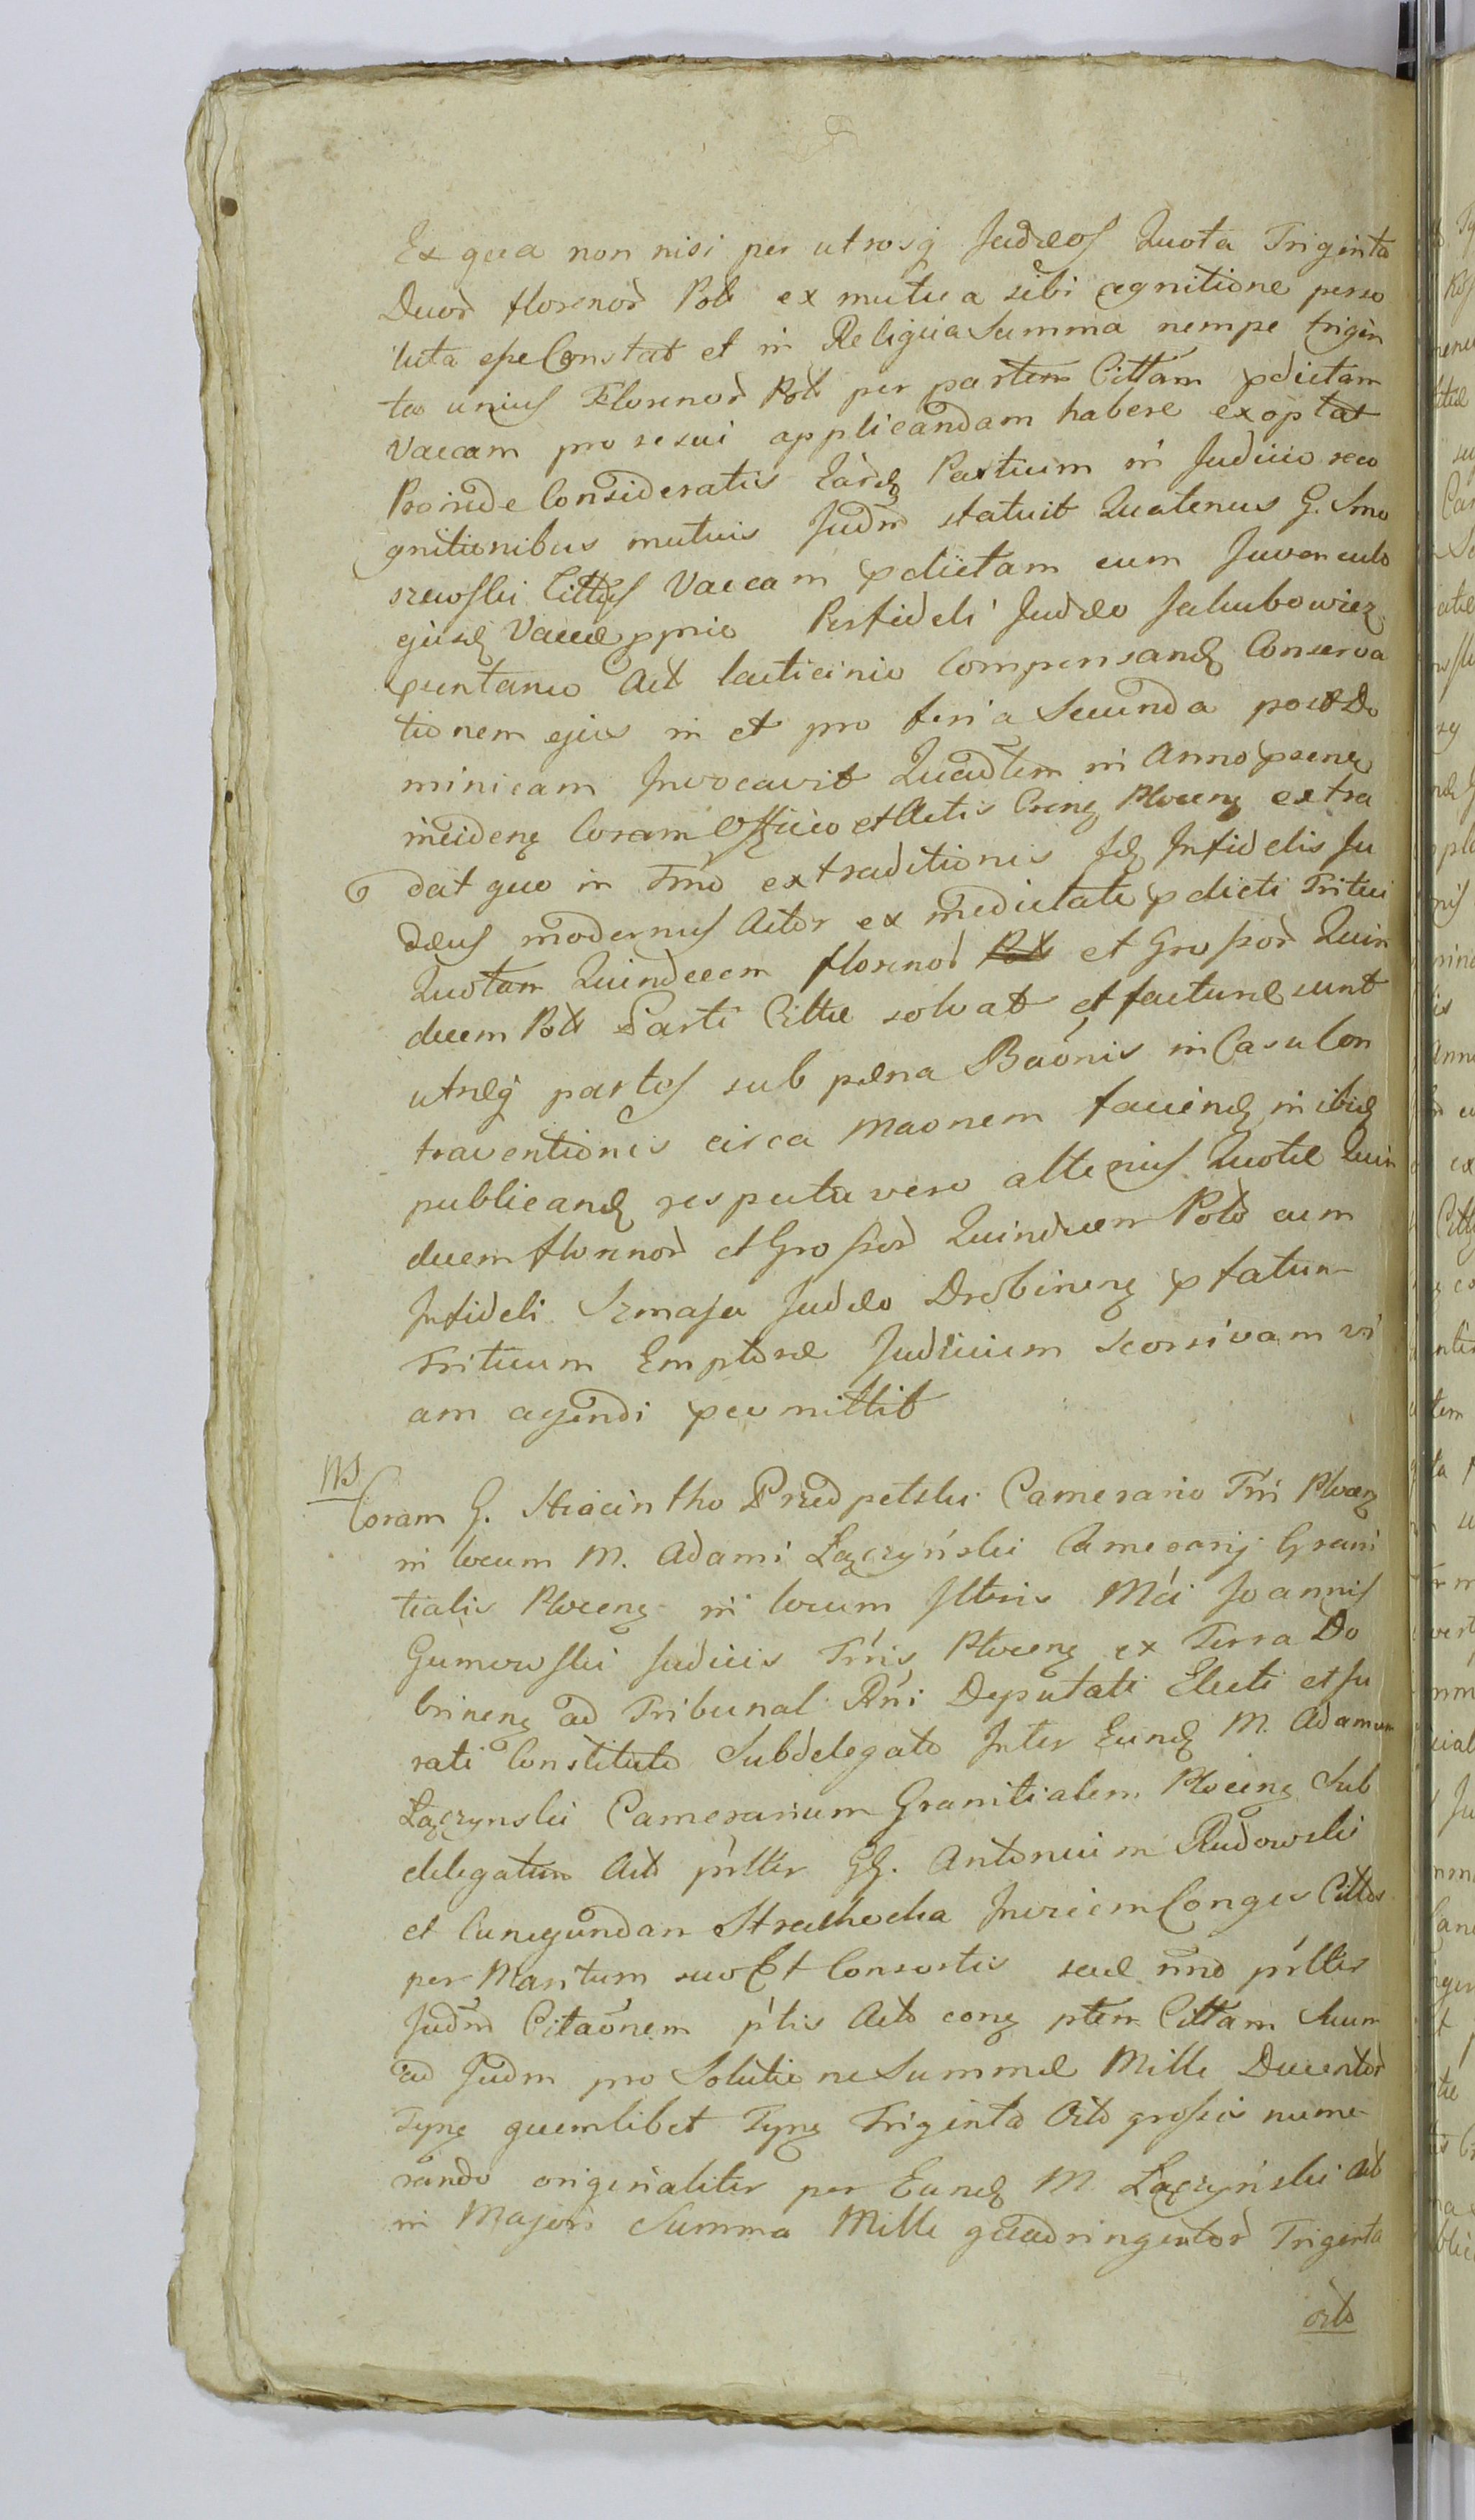 Ex qua non nisi per utrosq Judæos Quota Triginta
Duor florenor Pol ex mutua sibi cognitione perso
luta esse Constat et in Reliqua Summa nempe trigin
ta unius Florenor Pol per partem Cittam pdictam
Vaccam pro se sui applicandam habere exoptat
Proinde Consideratis Earq Partium in Judicio reco
gnitionibus mutuis Judm statuit Quatenus G. Smo
szewski Cittus Vaccam pdictam cum Juvenculo
ejusq Vaccæ pprio Perfideli Judæo Jakubowicz
Act lacticinio Compensanq Conserva
tionem ejus in et pro feria Secunda post Do
minicam Invocavit Quadlem in Anno præenę
incidenę Coram Officio et Actis Crenę Plocenę extra
dat quo in Trmo extraditionis Idq Infidelis Ju
dæus modernus Actor ex medietate pdicti Tritici
Quotam Quindecem florenor Pol et Grossor Quin
decem Pol Parti Cittæ solvat et facturæ sunt
utræq partes sub pæna Baonis in Casu Con
traventionis circa maonem facienq in ibiq
publicanq respectu vero alterius Quotæ Quin
decem florenor et Grossor Quindecem Pol cum
Infideli Szmaja Judæo Drobinenę pfatum
Triticum Emptore Judicium Seorsivam vi
am agendi permittit
NS
Coram G. Hiacintho Przedpelski Camerario Trri Plocenę
in locum M. Adami Łączyński Camerarij Grani
tialis Plocenę in locum Illtris Mci Joannis
Gumowski Judicis Trris Plocenę ex Terra Do
brinenę ad Tribunal Rni Deputati Electi et Ju
rati Constituto Subdelegato Inter Eunq M. Adamum
Łączynski Camerarium Granitialem Plocenę Sub
delegatum Act pnlter GG. Antonium Rudowski
et Cunegundan Strachocka Invicem Conges Cittos
per Maritum suo Et Consortis suæ nno pnlter
Judm Citaonem ptis Act conę ptem Cittam Suum
ad Judm pro Solutione Summæ Mille Ducentor
Tynę quemlibet Tynę Triginta Octo grossis nume
rando originaliter per Eunq M. Łączyński Act
in Majori Summa Mille quadringentor Triginta
octo